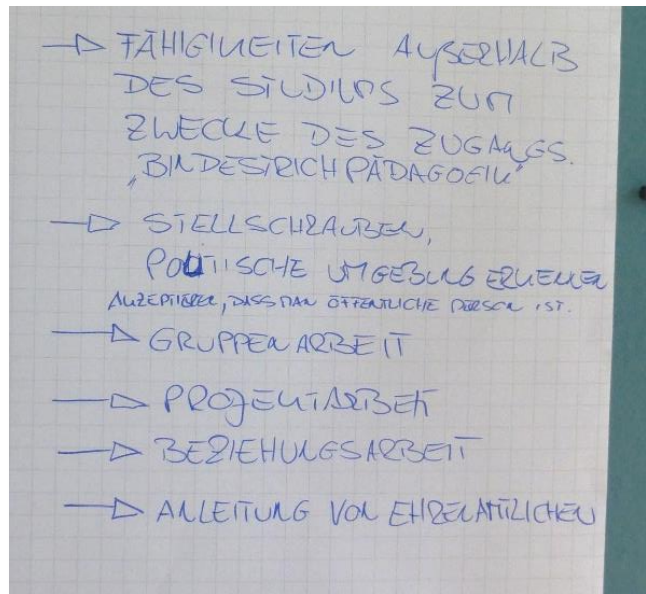 → FÄHIGKEITEN AUẞERHALB
DES STUDIUMS ZUM
ZWECKE DES ZUGANGS.
„BINDESTRICHPÄDAGOGIK“
→ STELLSCHRAUBEN,
POLITISCHE UMGEBUNG ERKENNEN
AKZEPTIEREN, DASS MAN ÖFFENTLICHE PERSON IST.
→ GRUPPENARBEIT
→ PROJEKTARBEIT
→ BEZIEHUNGSARBEIT
→ ANLEITUNG VON EHRENAMTLICHEN